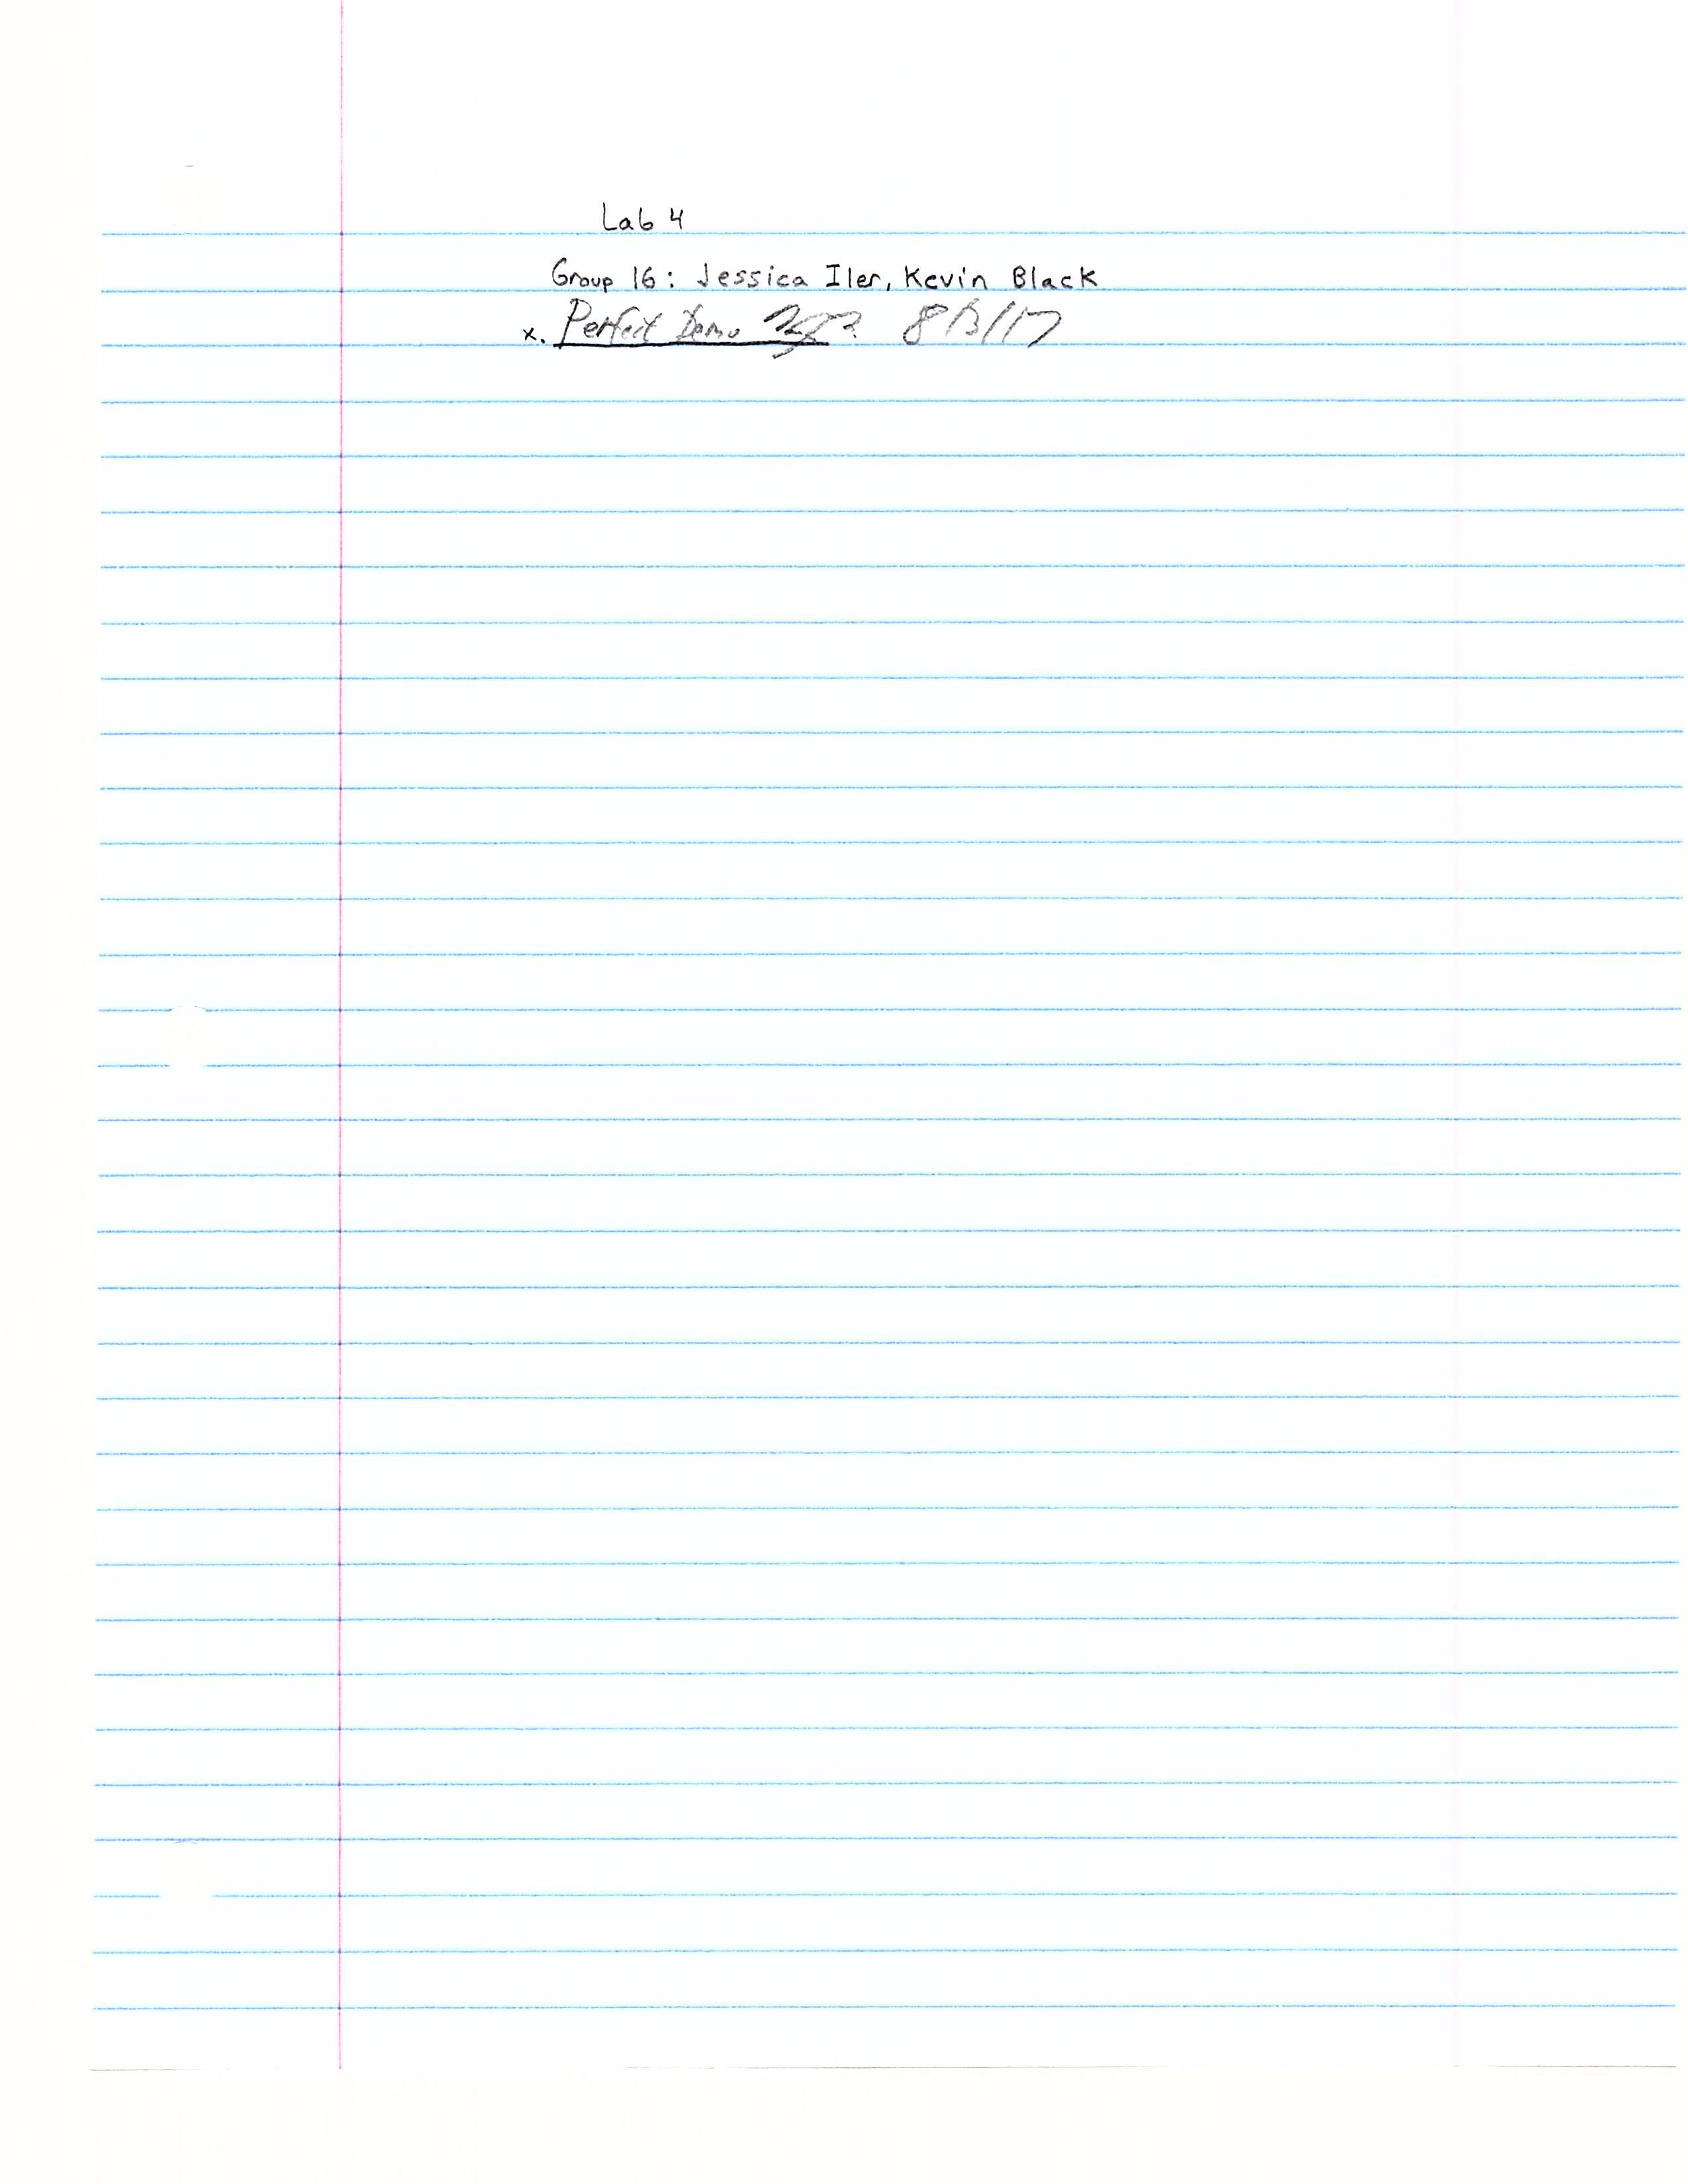 Lab 4
Group 16: Jessica Iler, Kevin Black
x. Perfect Demo